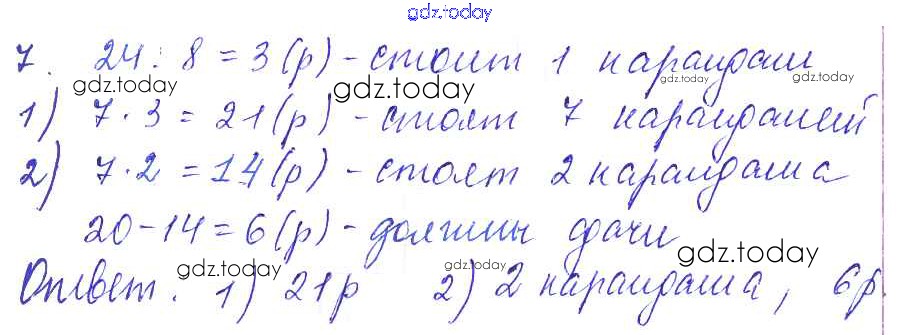 gdz.today
7. 24 : 8 = 3 (р) - стоит 1 карандаш
gdz.today gdz.today gdz.today
1) 7 · 3 = 21 (р) - стоят 7 карандашей
2) 7 · 2 = 14 (р) - стоят 2 карандаша
20 - 14 = 6 (р) - должны сдачи
gdz.today gdz.today gdz.today
Ответ. 1) 21р 2) 2 карандаша, 6р.